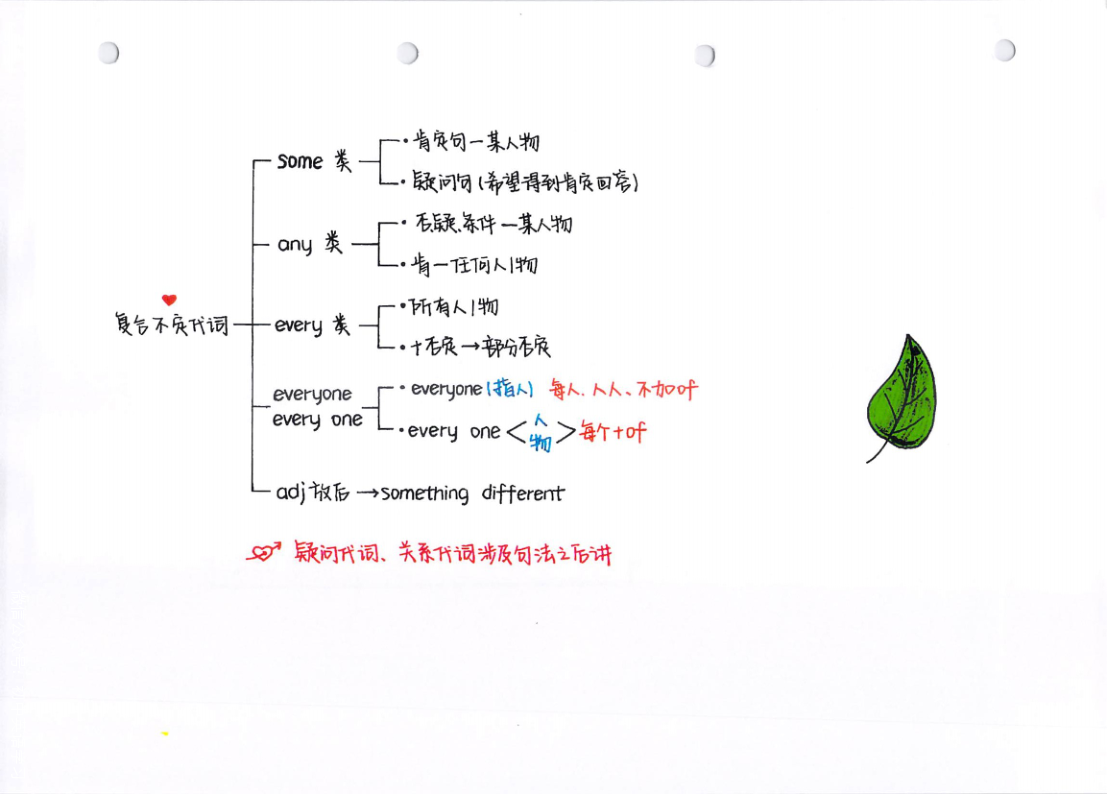 some 类
·肯定句—某人物
·疑问句(希望得到肯定回答)
any 类
·否.疑.条件—某人物
·肯—任何人/物
复合不定代词
every 类
·所有人/物
·+否定→部分否定
everyone
every one
·everyone(指人) 每人.人人、不加of
·every one < 人 物 > 每个+of
adj放后→something different
疑问代词、关系代词涉及句法之后讲